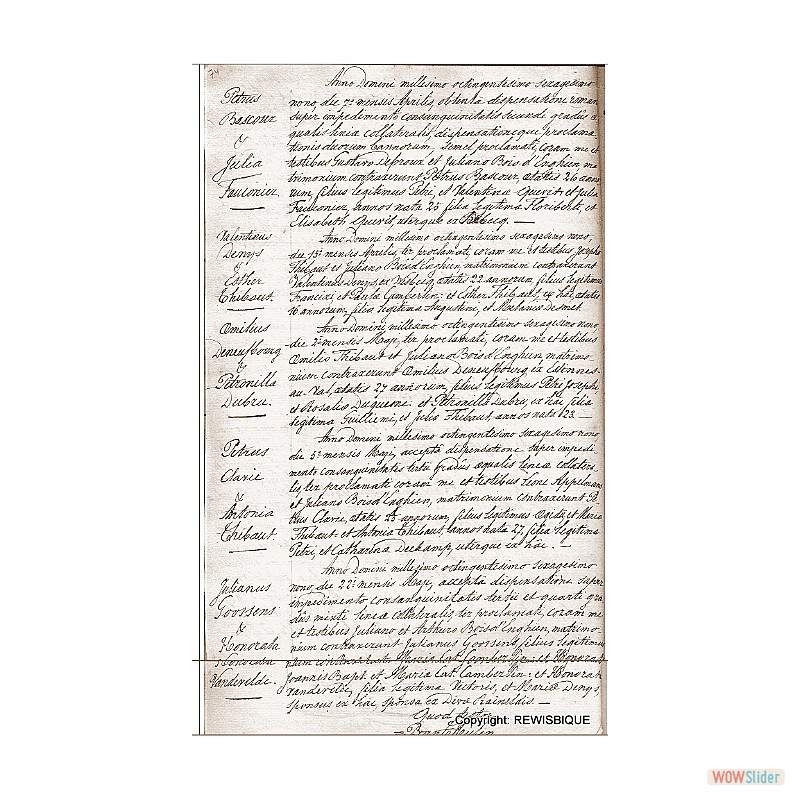 74
Anno Domini millesimo octingentesimo sexagesimo
Petrus
Bascour
&
Julia
Fauconier.
nono, die 7ª mensis Aprilis, obtenta dispensatione roman
super impedimento consanguinitatis secundi gradus
qualis linea collateralis, dispensationeque proclama
tionis duorum bannorum, semel proclamati, coram me et
testibus Gustavo Debroux et Juliano Bois d'Enghien, ma
trimonium contraxerunt Petrus Bascour, ætatis 26 anno
rum, filius legitimus Petri, et Valentinæ Querit et Julia
Fauconier, annos nata 25 filia legitima Floriberti, et
Elisabeth Querit, uterque ex
Valentinus
Denys
&
Esther
Thibaut.
Anno Domini millesimo octingentesimo sexagesimo nono,
die 13ª mensis Aprilis, ter proclamati, coram me et testibus Josepho
Thibaut et Juliano Bois d'Enghien matrimonium contraxerunt
Valentinus Denys, ex ætatis 22 annorum filius legitimus
Francisci, et Paula Camberlin: et Esther Thibaut, ex hac, ætatis
annorum, filia legitima Augustini, et Desmet.
Æmilius
Deneufbourg
&
Petronilla
Dubru.
Anno Domini millesimo octingentesimo sexagesimo nono,
die 2ª mensis Maji, ter proclamati, coram me et testibus
Æmilio Thibaut et Juliano Bois d'Enghien, matrimo
nium contraxerunt Æmilius Deneufbourg ex
au-Val, ætatis 27 annorum, filius legitimus Petri Josephi
et Rosalis Duquesne et Petronilla Dubru, ex hac, filia
legitima Guillielmi, et Julia Thibaut, annos nata 23.
Petrus
Clavie
&
Antonia
Thibaut.
Anno Domini millesimo octingentesimo sexagesimo nono
die 5ª mensis Maji, accepta dispensatione super impedi
mento consanguinitatis tertii gradus æqualis lineæ collatera
lis, ter proclamati coram me et testibus Leone Appelmans
et Juliano Bois d'Enghien, matrimonium contraxerunt Pe
trus Clavie, ætatis 25 annorum, filius legitimus Ægidii et Maria
Thibaut: et Antonia Thibaut, annos nata 27, filia legitima
Petri, et Catharina Deckamp, uterque ex hac.
Julianus
Goossens
&
Honorata
Vandervelde.
Anno Domini millesimo octingentesimo sexagesimo
nono, die 22ª mensis Maji, accepta dispensatione super
impedimento consanguinitatis tertii et quarti gra
dus lineæ collateralis ter proclamati, coram me
et testibus Juliano et Arthuro Bois d'Enghien, matrimo-
nium contraxerunt Julianus Goossens, filius legitimus
Joannis Bapt. et Maria Cat. Camberlin: et Honorata
Vandervelde, filia legitima Victoris, et Maria Denys,
sponsus ex hac, sponsa ex
Quod
Copyright: REWISBIQUE
WOWSlider